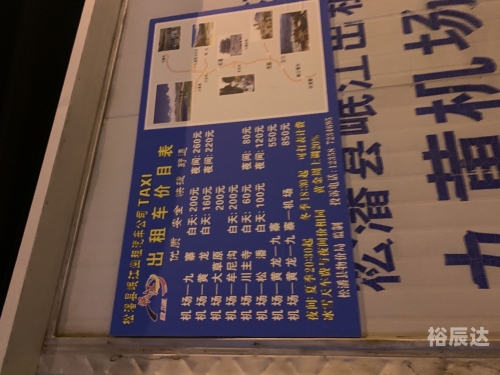 松潘县岷江出租汽车公司TAXI
出租车价目表
优质 安全 快捷 舒适
机场—九寨 白天:200元 夜间:260元
机场—黄龙 白天:160元 夜间:220元
机场—大草原 200元
机场—牟尼沟 白天:200元
机场—川主寺 白天:60元 夜间:80元
机场—松潘 白天:100元 夜间:120元
机场—黄龙—九寨 550元
机场—黄龙—九寨—机场 850元
夜间:夏季20:30起 冬季18:30起 可打表计费
冰雪天车费与夜间价相同 黄金周上调20%
松潘县物价局 监制 投诉电话:12358 7234685
松潘县岷江出租
九黄机场
裕辰达